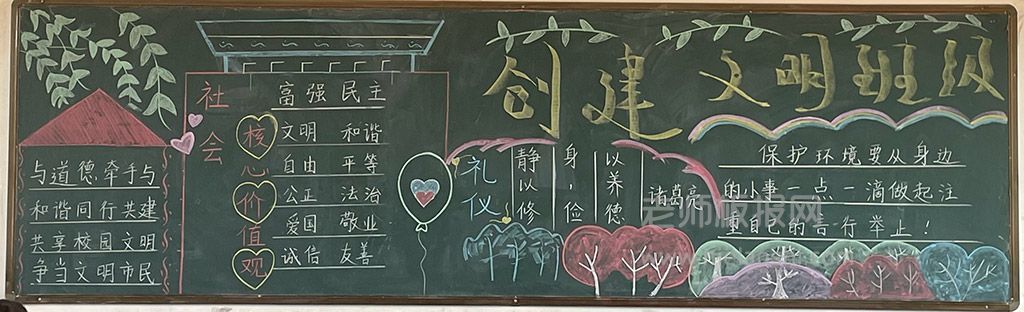 创建文明班级
与道德牵手与
和谐同行共建
共享校园文明
争当文明市民
社会
核心价值观
高强民主
文明 和谐
自由 平等
公正 法治
爱国 敬业
诚信 友善
礼仪
静以修
身，俭
以养德
诸葛亮
保护环境要从身边
的小事一点一滴做起注
重自己的言行举止！
老师板报网